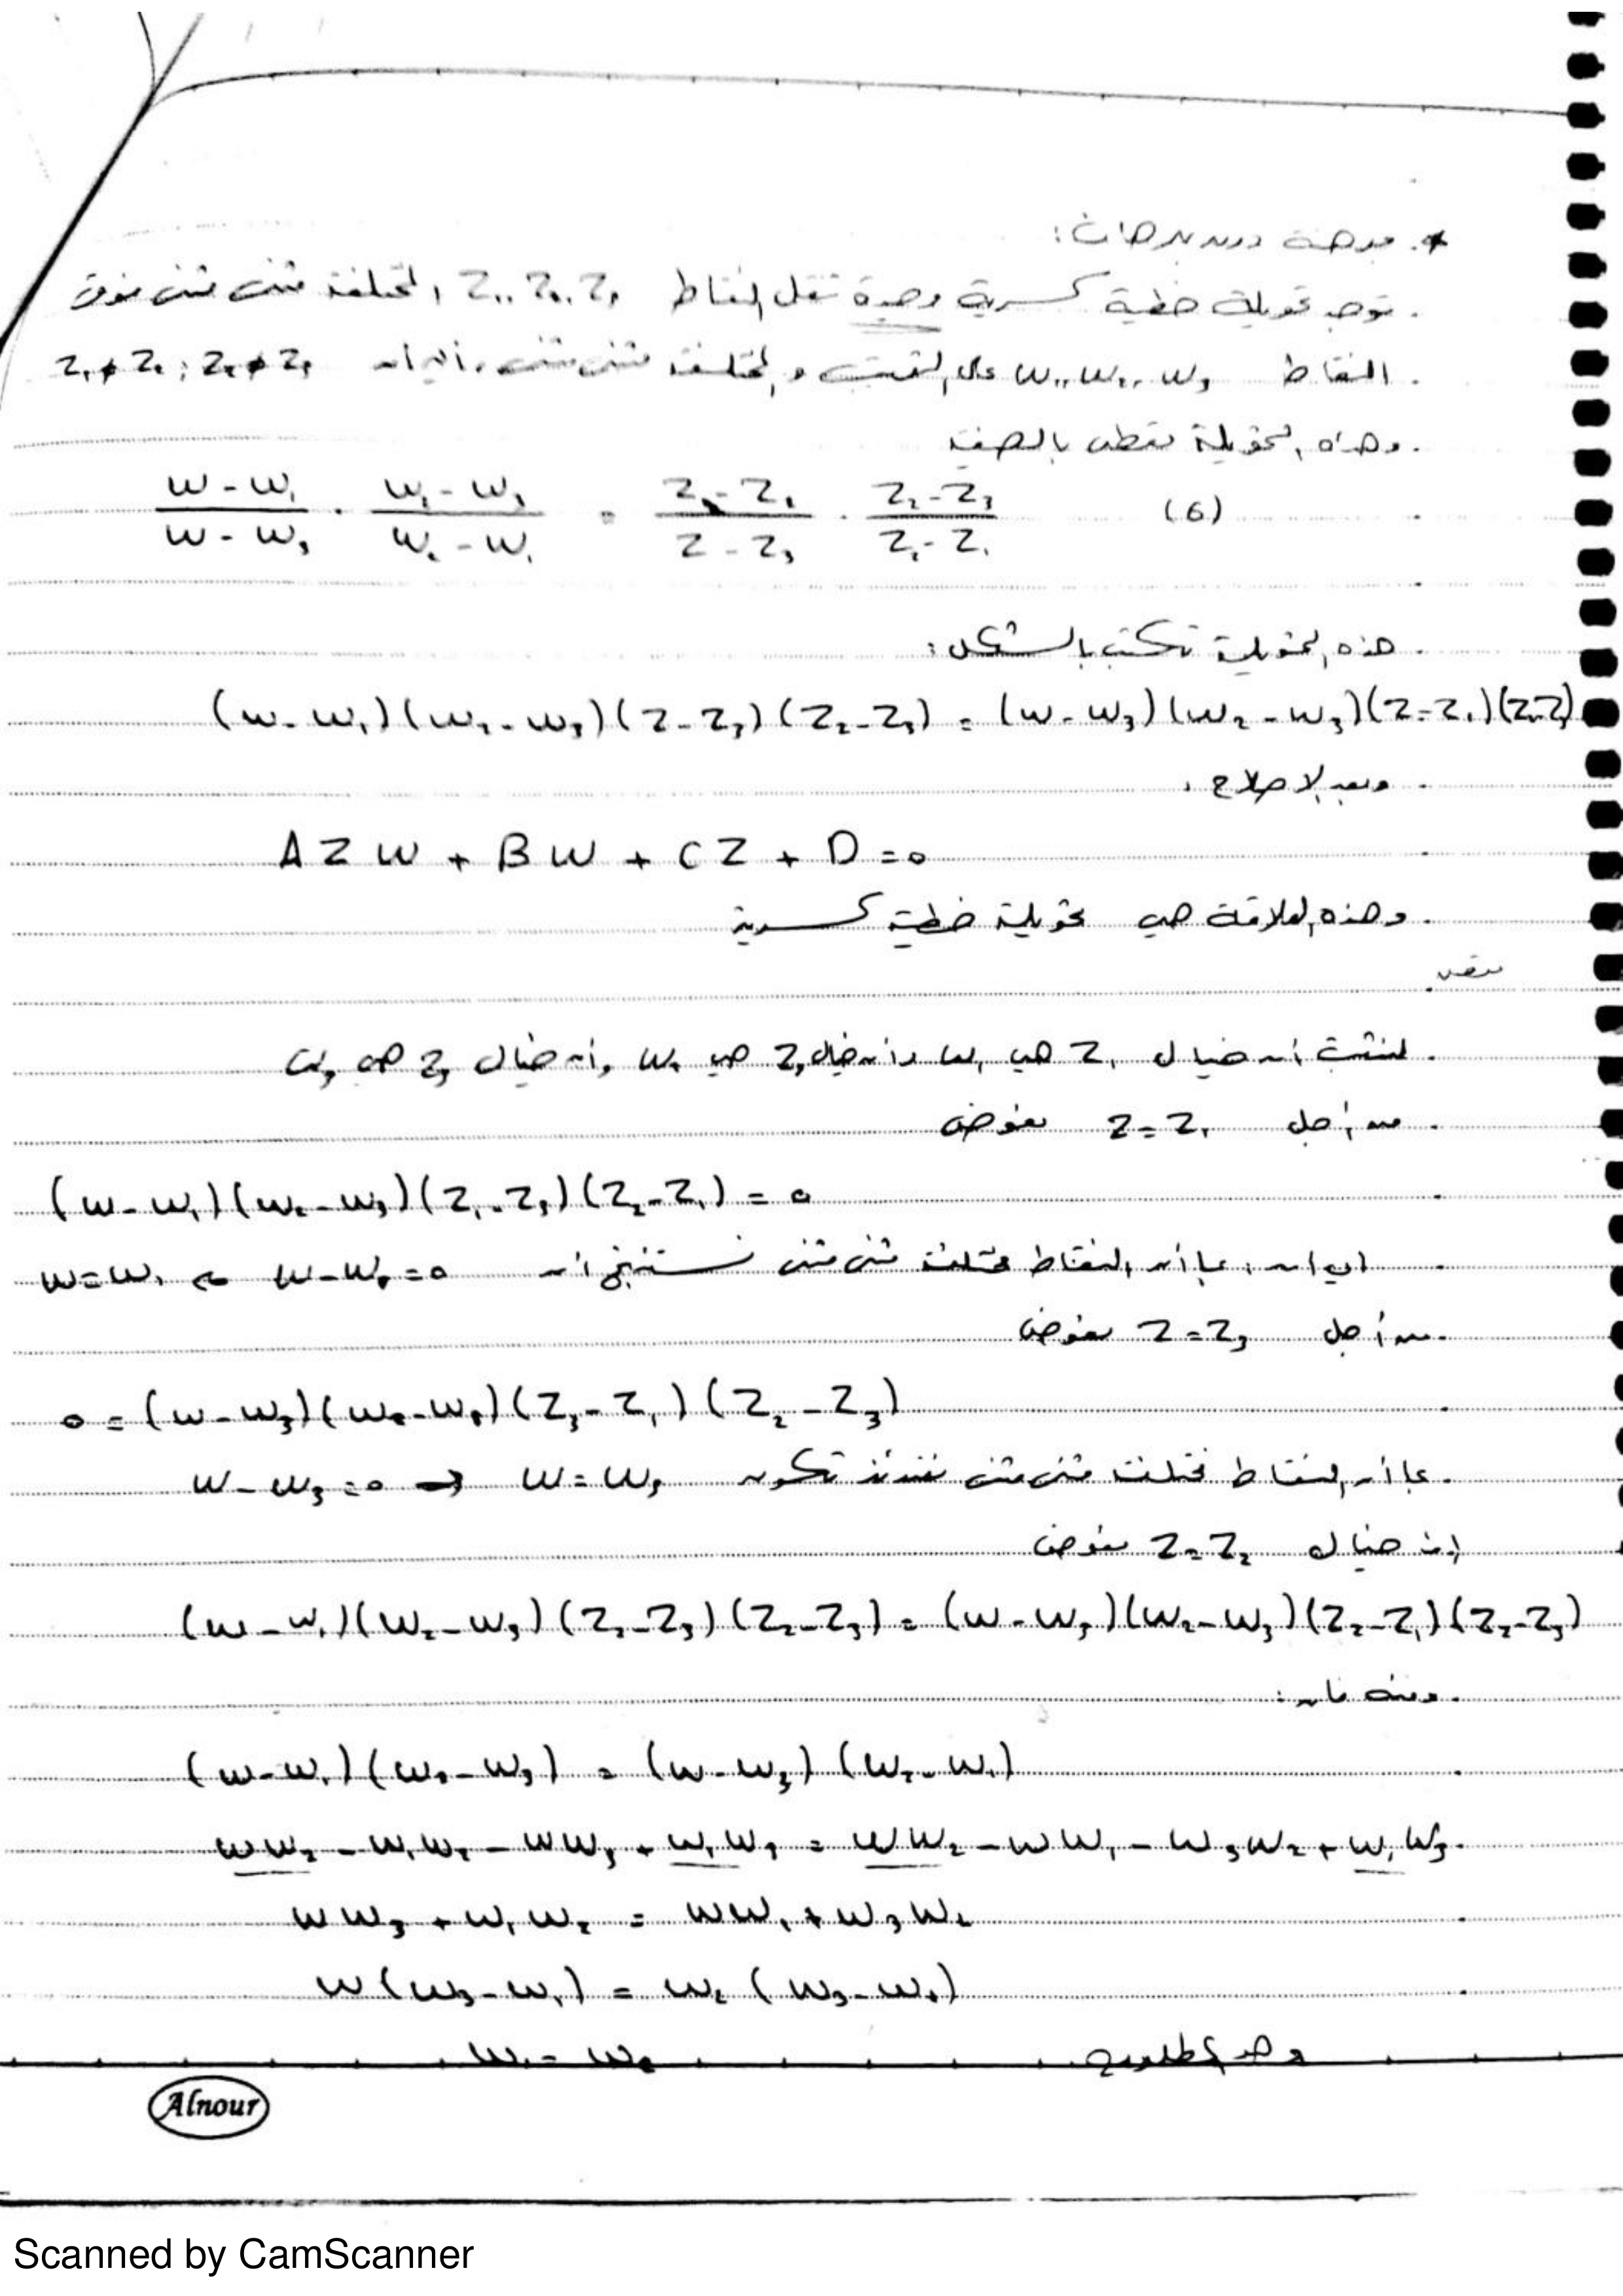 مبرهنة دون برهان:
توجد تحويلة خطية كسرية وحيدة تنقل النقاط z₁, z₂, z₃ المختلفة مثنى مثنى فوق
النقاط w₁, w₂, w₃ على الترتيب والمختلفة مثنى مثنى، أي أن z₁≠z₂ ; z₂≠z₃
وهذه التحويلة تعطى بالصيغة
(w-w₁)/(w-w₃) · (w₂-w₃)/(w₂-w₁) = (z-z₁)/(z-z₃) · (z₂-z₃)/(z₂-z₁) (6)
هذه التحويلة تكتب بالشكل:
(w-w₁)(w₂-w₃)(z-z₃)(z₂-z₃) = (w-w₃)(w₂-w₃)(z-z₁)(z₂-z₃)
وبعد الإصلاح
AZW + BW + CZ + D = 0
وهذه العلاقة هي تحويلة خطية كسرية
لنثبت أن خيال z₁ هي w₁ وأن خيال z₂ هي w₂ وأن خيال z₃ هي w₃
من أجل z=z₁ نعوض
(w-w₁)(w₂-w₃)(z₁-z₃)(z₂-z₁) = 0
أي أن، بما أن النقاط مختلفة مثنى مثنى نستنتج أن w-w₁=0 ⇒ w=w₁
من أجل z=z₃ نعوض
0 = (w-w₃)(w₂-w₁)(z₃-z₁)(z₂-z₃)
بما أن النقاط مختلفة مثنى مثنى عندئذ تكون w-w₃=0 ⇒ w=w₃
خيال z=z₂ نعوض
(w-w₁)(w₂-w₃)(z₂-z₃)(z₂-z₃) = (w-w₃)(w₂-w₃)(z₂-z₁)(z₂-z₃)
ومنه فإن:
(w-w₁)(w₂-w₃) = (w-w₃)(w₂-w₁)
ww₂ - w₁w₂ - ww₃ + w₁w₃ = ww₂ - ww₁ - w₃w₂ + w₁w₃
ww₃ + w₁w₂ = ww₁ + w₃w₂
w(w₃-w₁) = w₂(w₃-w₁)
w = w₂ وهو المطلوب
Alnour
Scanned by CamScanner